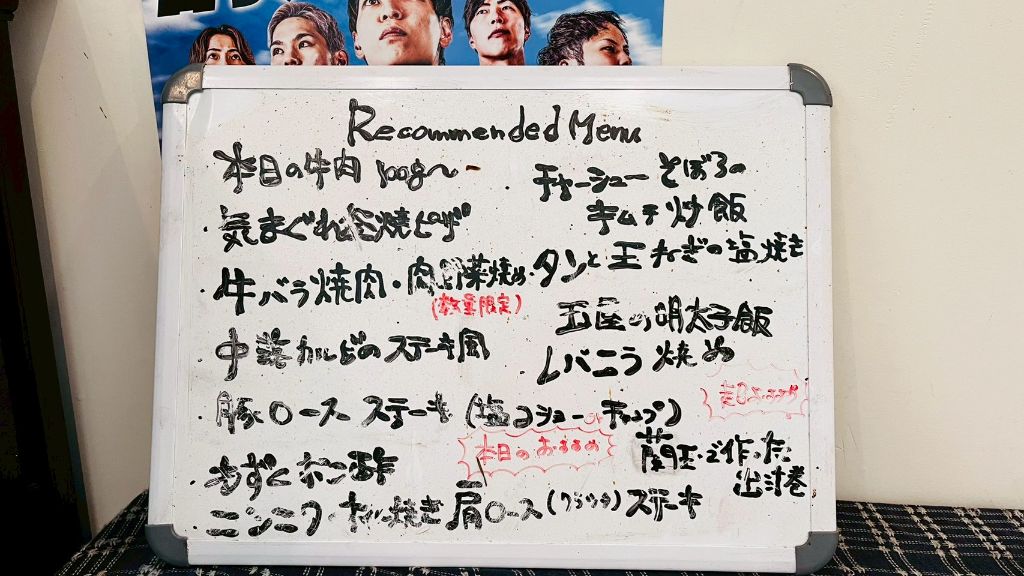 Recommended Menu
本日の牛肉 100g〜
気まぐれ 焼ピザ
牛バラ焼肉・肉野菜焼め
(数量限定)
中落カルビのステーキ風
豚ロースステーキ (塩コショーorチャップ)
もずくポン酢
本日のおすすめ
ニンニクホイル焼き
チャーシューそぼろの
キムチ炒飯
タンと玉ねぎの塩焼き
五醤の明太子飯
レバニラ炒め
本日おすすめ
蘭王で作った
出汁巻
肩ロース(ブラック)ステーキ